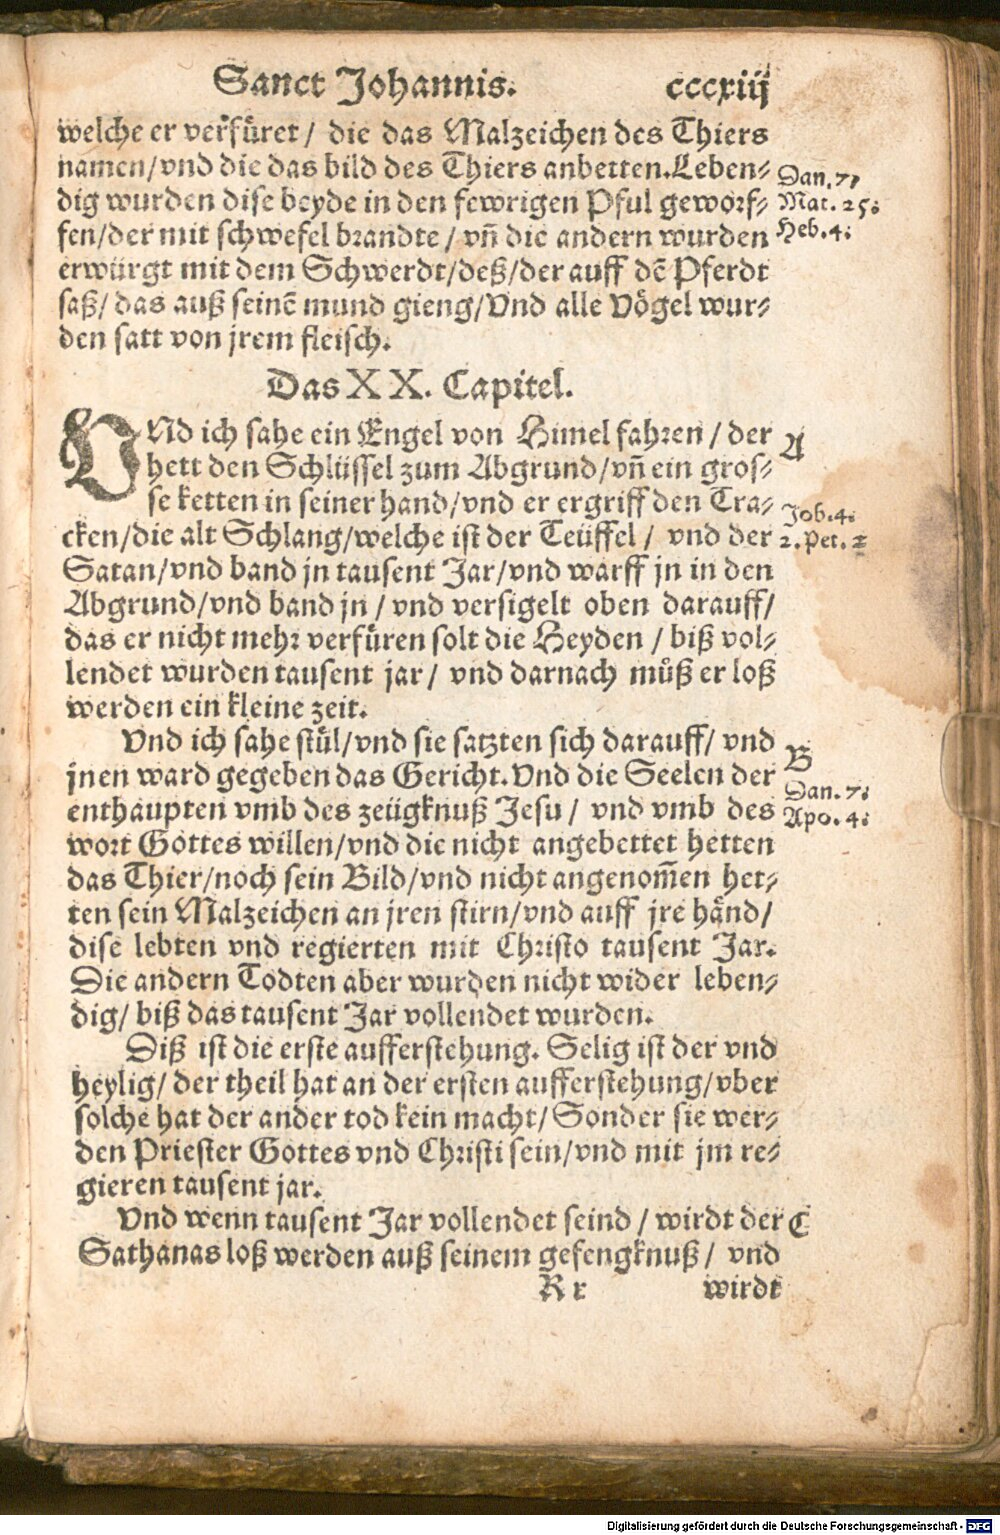 Sanct Johannis. cccxiij
welche er verfüret / die das Malzeichen des Thiers
namen/vnd die das bild des Thiers anbetten. Leben-
dig wurden dise beyde in den fewrigen Pful geworf-
fen/der mit schwefel brandte / vñ die andern wurden
erwürgt mit dem Schwerdt/deß/der auff dē Pferdt
saß/ das auß seinē mund gieng/Vnd alle Vögel wur-
den satt von jrem fleisch.
Dan. 7.
Mat. 25.
Heb. 4.
Das XX. Capitel.
VNd ich sahe ein Engel von Himel fahren / der
hett den Schlüssel zum Abgrund/vñ ein gros-
se ketten in seiner hand/vnd er ergriff den Tra-
cken/die alt Schlang/welche ist der Teüffel / vnd der
Satan/vnd band jn tausent Jar/vnd warff jn in den
Abgrund/vnd band jn / vnd versigelt oben darauff/
das er nicht mehr verfüren solt die Heyden / biß vol-
lendet wurden tausent jar/ vnd darnach müß er loß
werden ein kleine zeit.
A
Job. 4.
2. Pet. 2
Vnd ich sahe stül/vnd sie satzten sich darauff/ vnd
jnen ward gegeben das Gericht. Vnd die Seelen der
enthäupten vmb des zeügknuß Jesu / vnd vmb des
wort Gottes willen/vnd die nicht angebettet hetten
das Thier/noch sein Bild/vnd nicht angenom̄en het-
ten sein Malzeichen an jren stirn/vnd auff jre händ/
dise lebten vnd regierten mit Christo tausent Jar.
Die andern Todten aber wurden nicht wider leben-
dig/ biß das tausent Jar vollendet wurden.
B
Dan. 7.
Apo. 4.
Diß ist die erste aufferstehung. Selig ist der vnd
heylig/ der theil hat an der ersten aufferstehung/vber
solche hat der ander tod kein macht/ Sonder sie wer-
den Priester Gottes vnd Christi sein/vnd mit jm re-
gieren tausent jar.
Vnd wenn tausent Jar vollendet seind / wirdt der
Sathanas loß werden auß seinem gefengknuß / vnd
C
R r wirdt
Digitalisierung gefördert durch die Deutsche Forschungsgemeinschaft - DFG